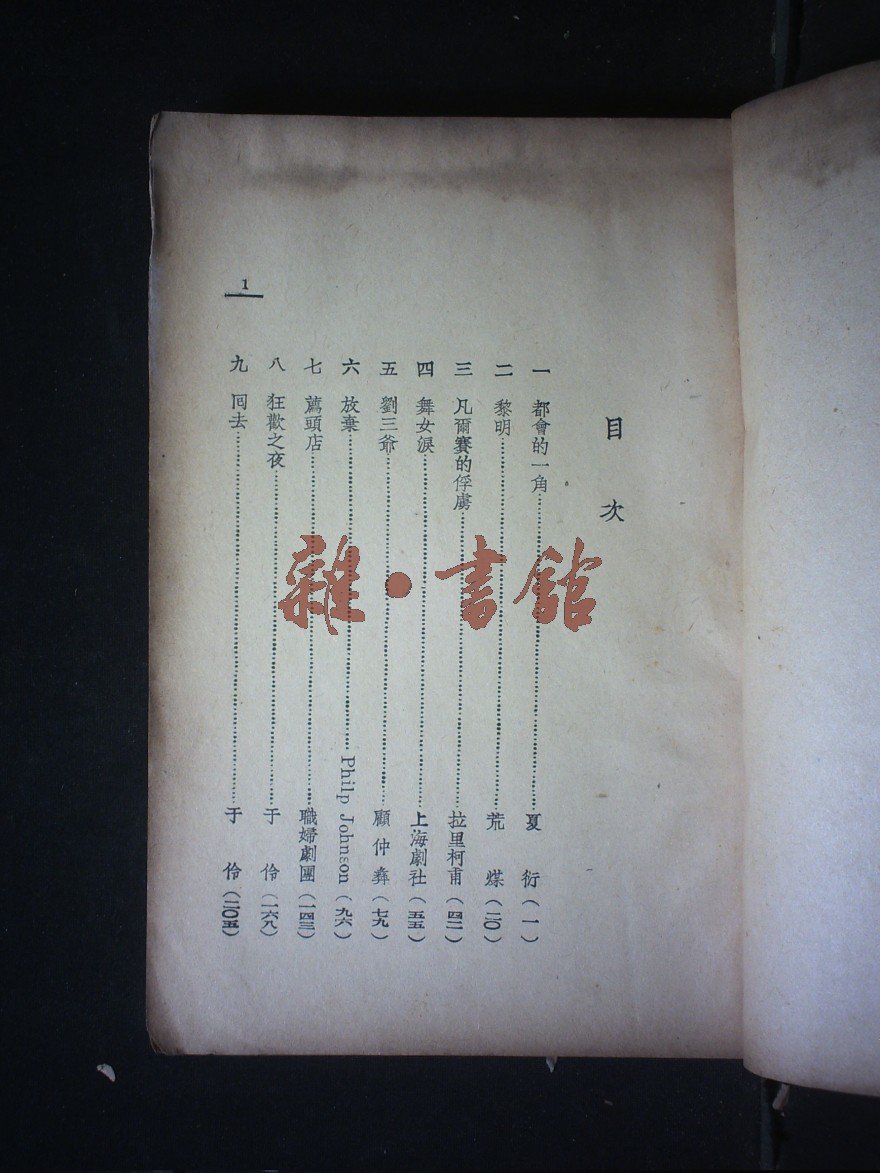 目次
一 都會的一角……夏衍(一)
二 黎明……荒煤(二〇)
三 凡爾賽的俘虜……拉里柯甫(四二)
四 舞女淚……上海劇社(五五)
五 劉三爺……顧仲彝(七九)
六 放棄……Philp Johnson(九六)
七 薦頭店……職婦劇團(一四三)
八 狂歡之夜……于伶(一六八)
九 囘去……于伶(二〇五)
1
雜·書館